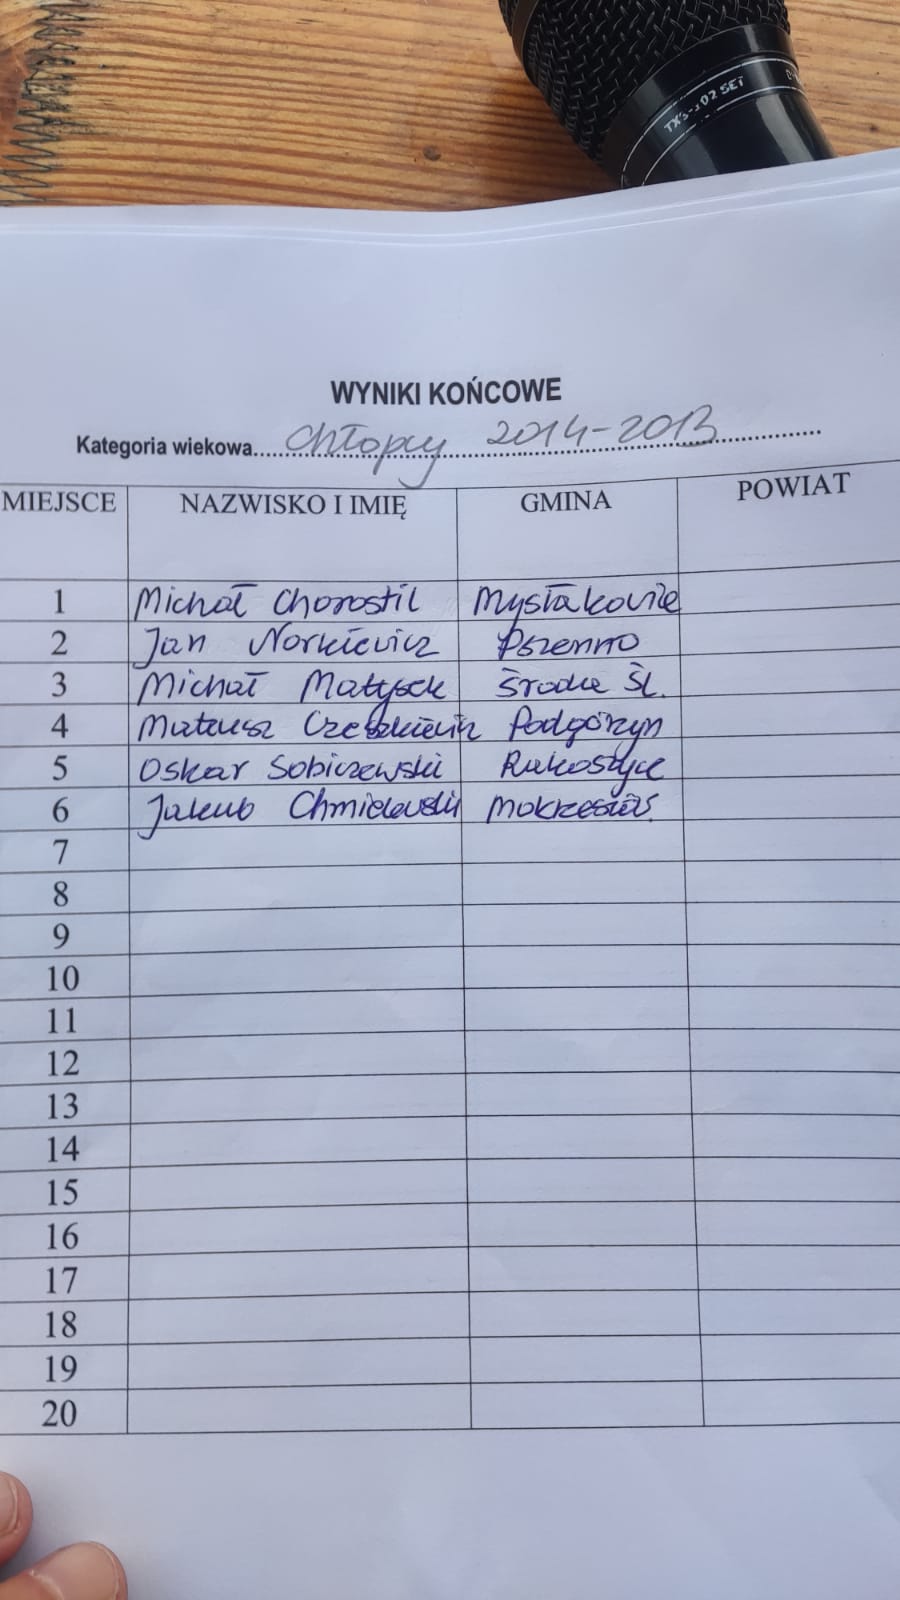 TXS-202 SET
WYNIKI KOŃCOWE
Kategoria wiekowa.....Chłopcy 2014-2013
MIEJSCE NAZWISKO I IMIĘ GMINA POWIAT
1 Michał Chorostil Mysłakowice
2 Jan Norkiewicz Pszenno
3 Michał Małysek Środa Śl.
4 Mateusz Podgórzyn
5 Oskar Sobiczewski
6 Jakub Chmielewski Mokrzeszów
7
8
9
10
11
12
13
14
15
16
17
18
19
20